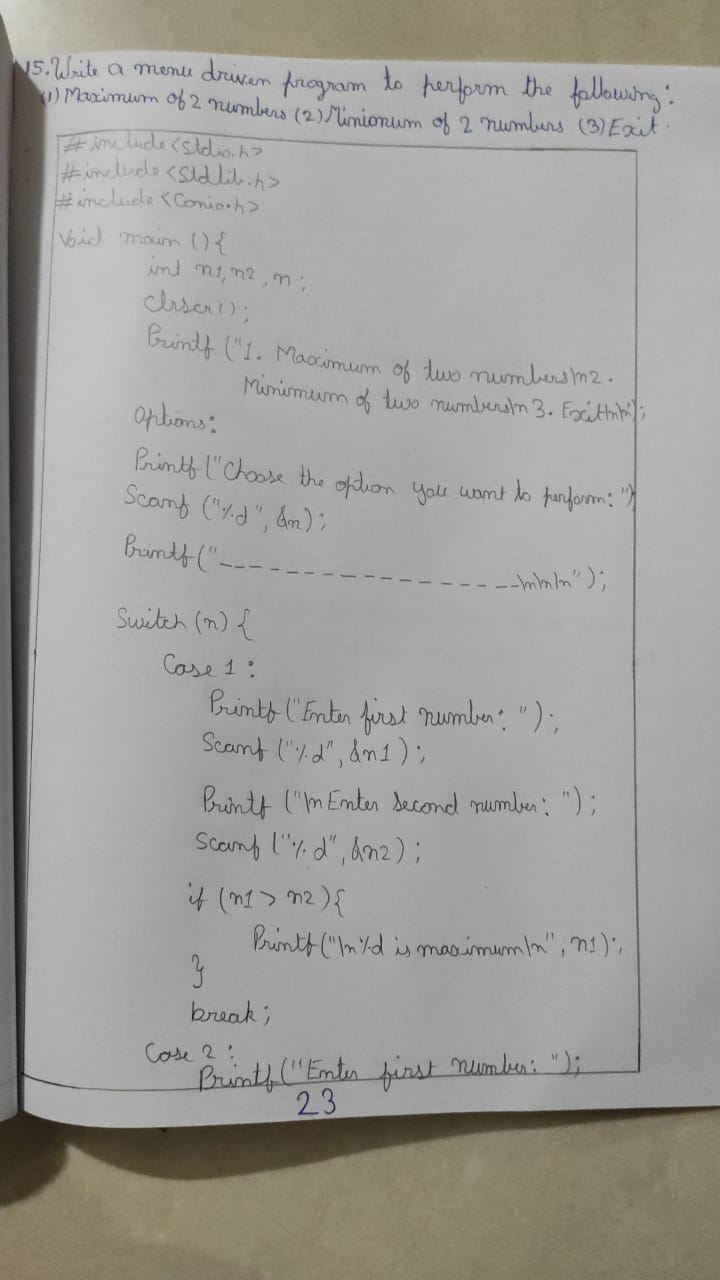 15. Write a menu driven program to perform the following:
(1) Maximum of 2 numbers (2) Minimum of 2 numbers (3) Exit.
#include <Stdio.h>
#include <Stdlib.h>
#include <Conio.h>
Void main () {
int n1, n2, n;
Clrscr();
Printf ("1. Maximum of two numbers\n2.
Minimum of two numbers\n 3. Exit\n\n");
Options:
Printf ("Choose the option you want to perform: ")
Scanf ("%d", &n);
Printf ("------------------\n\n\n");
Switch (n) {
Case 1 :
Printf ("Enter first number: ");
Scanf ("%d", &n1);
Printf ("\nEnter Second number: ");
Scanf ("%d", &n2);
if (n1 > n2) {
Printf ("\n%d is maximum\n", n1);
}
break;
Case 2 :
Printf ("Enter first number: ");
23